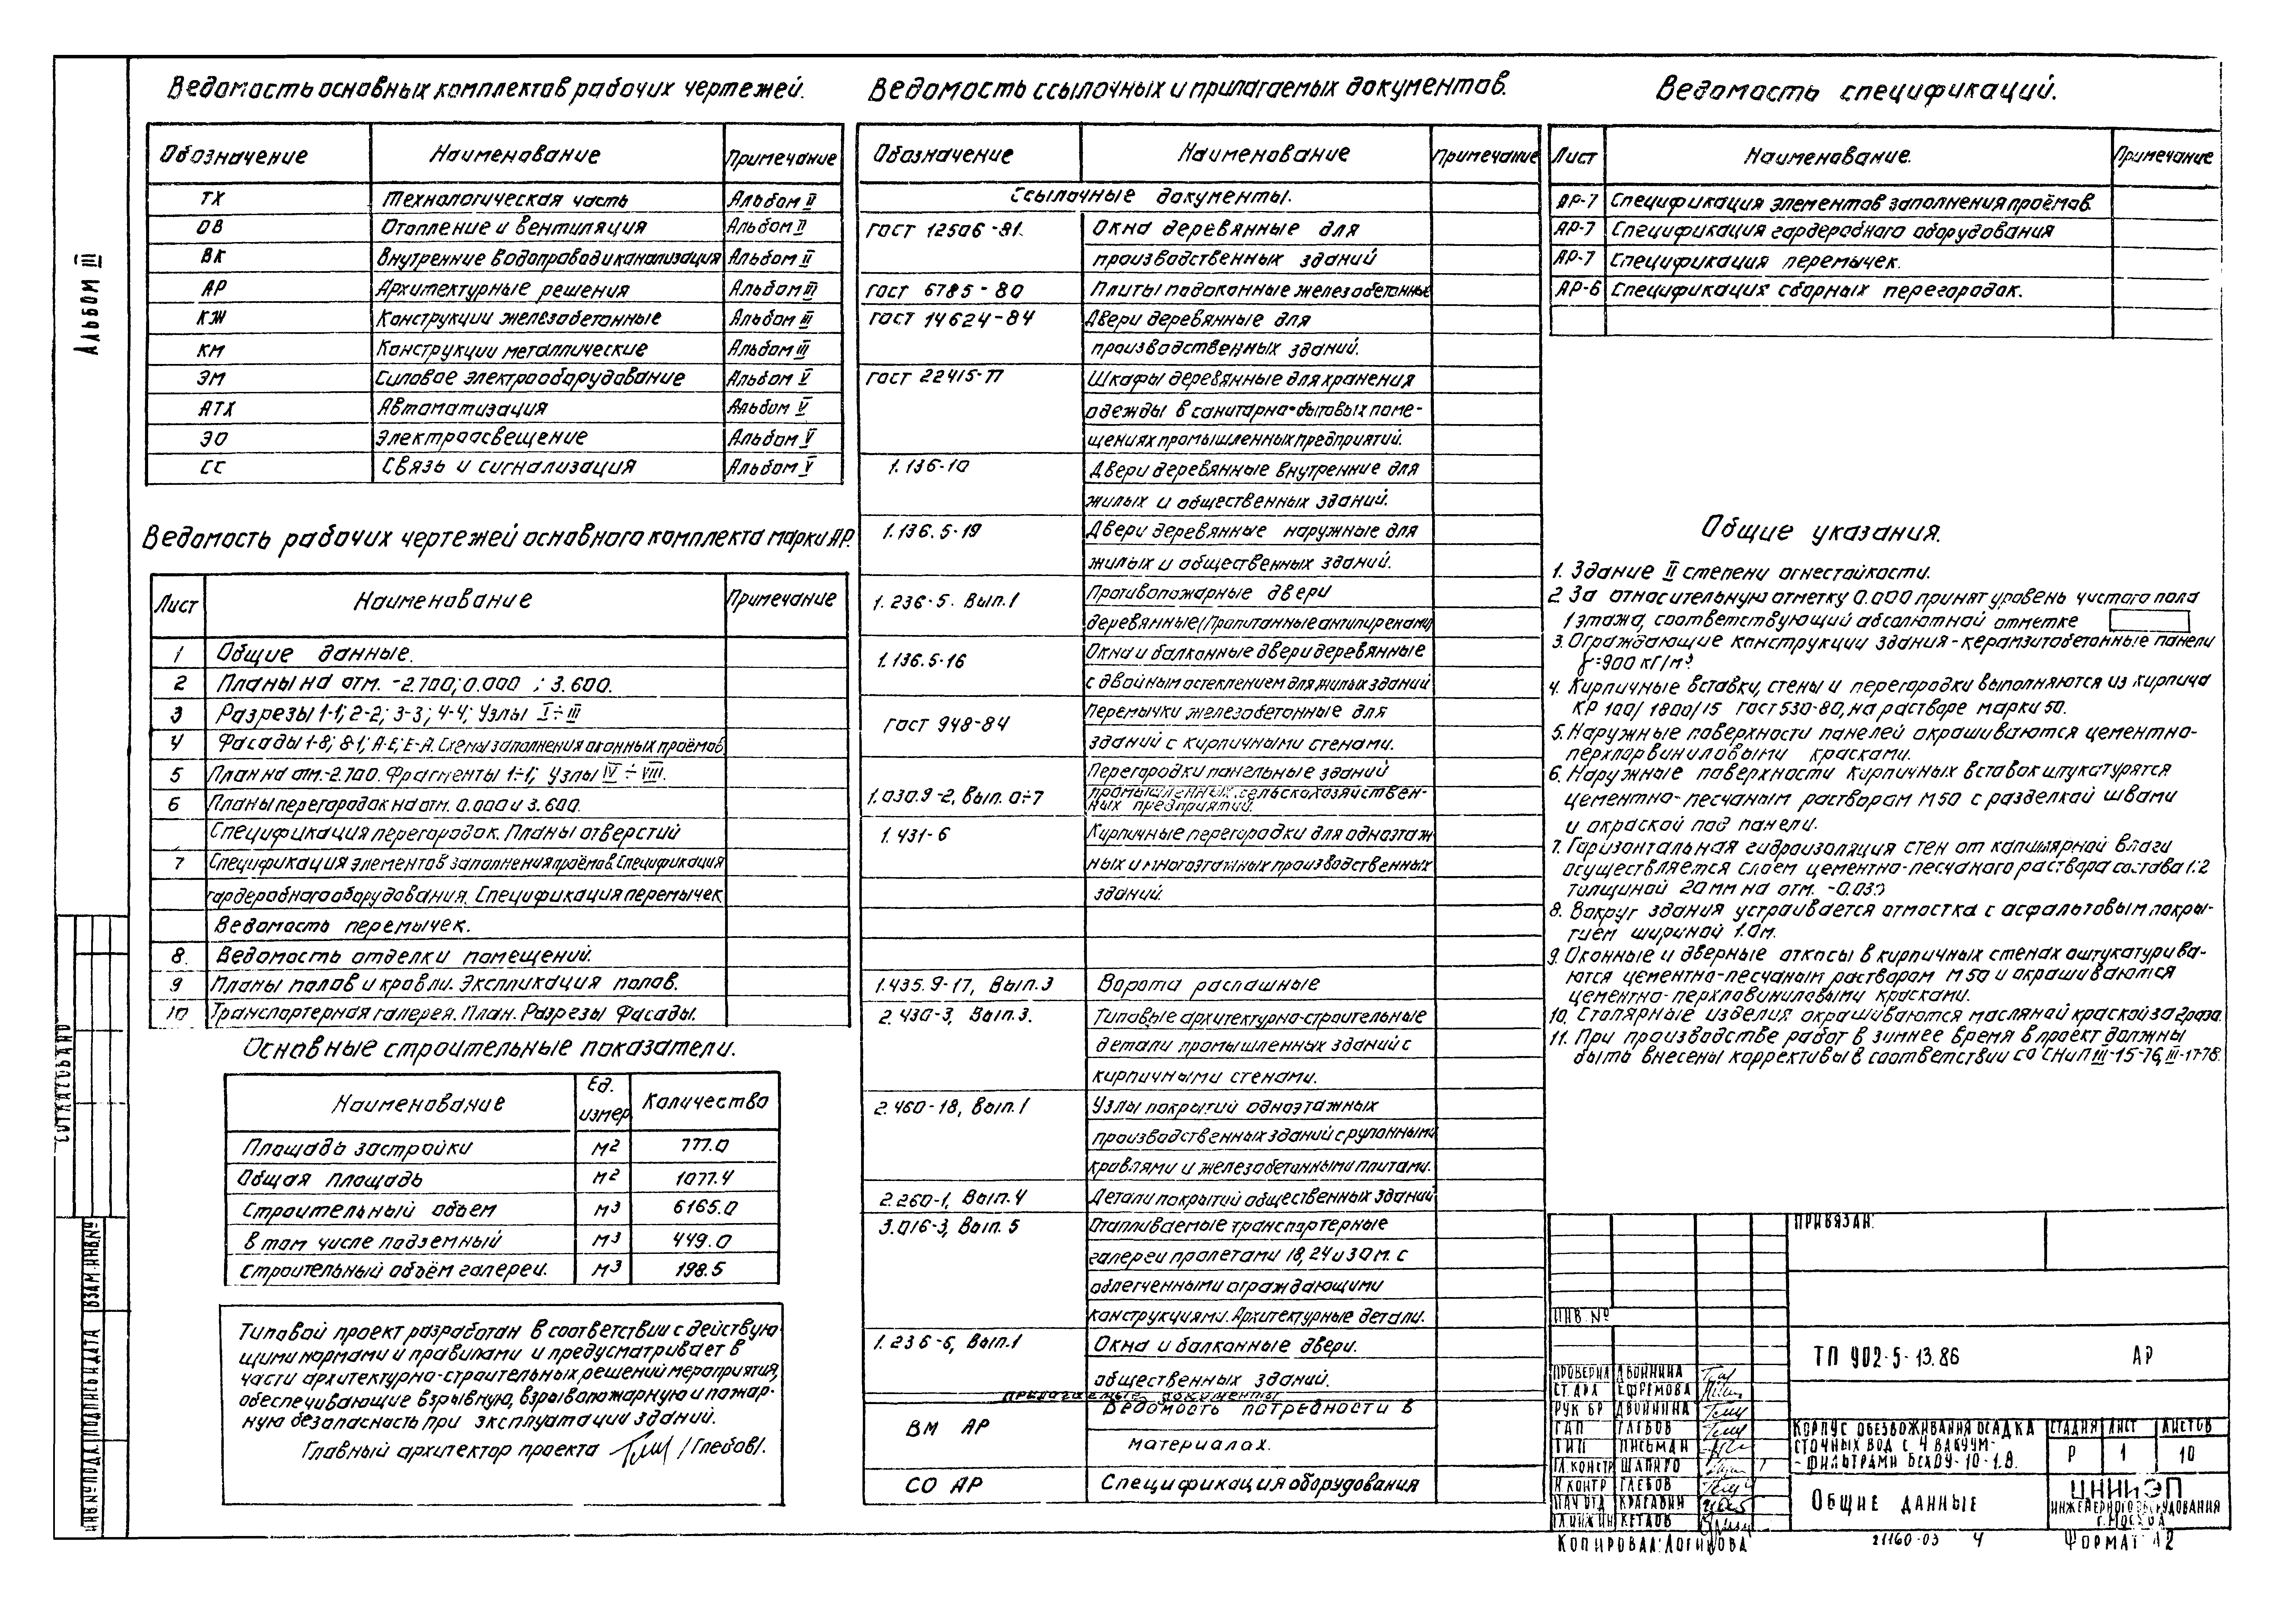 Альбом III
Ведомость основных комплектов рабочих чертежей.
Обозначение Наименование Примечание
ТХ Технологическая часть Альбом II
ОВ Отопление и вентиляция Альбом II
ВК Внутренние водопровод и канализация Альбом II
АР Архитектурные решения Альбом III
КЖ Конструкции железобетонные Альбом III
КМ Конструкции металлические Альбом III
ЭМ Силовое электрооборудование Альбом V
АТХ Автоматизация Альбом V
ЭО Электроосвещение Альбом V
СС Связь и сигнализация Альбом V
Ведомость рабочих чертежей основного комплекта марки АР.
Лист Наименование Примечание
1 Общие данные.
2 Планы на отм. -2.700; 0.000 ; 3.600.
3 Разрезы 1-1; 2-2; 3-3; 4-4; Узлы I÷III
4 Фасады 1-8; 8-1; А-Е; Е-А. Схемы заполнения оконных проёмов.
5 План на отм. -2.700. Фрагменты 1÷1; Узлы IV ÷ VIII.
6 Планы перегородок на отм. 0.000 и 3.600.
Спецификация перегородок. Планы отверстий
7 Спецификация элементов заполнения проёмов. Спецификация
гардеробного оборудования. Спецификация перемычек
Ведомость перемычек.
8. Ведомость отделки помещений.
9 Планы полов и кровли. Экспликация полов.
10 Транспортерная галерея. План. Разрезы Фасады.
Основные строительные показатели.
Наименование Ед. измер Количество
Площадь застройки м2 777.0
Общая площадь м2 1077.4
Строительный объем м3 6165.0
в том числе подземный м3 449.0
Строительный объём галереи. м3 198.5
Типовой проект разработан в соответствии с действую-
щими нормами и правилами и предусматривает в
части архитектурно-строительных решений мероприятия,
обеспечивающие взрывную, взрывопожарную и пожар-
ную безопасность при эксплуатации зданий.
Главный архитектор проекта /Глебов/.
Ведомость ссылочных и прилагаемых документов.
Обозначение Наименование Примечание
Ссылочные документы.
ГОСТ 12506-81. Окна деревянные для
производственных зданий
ГОСТ 6785-80 Плиты подоконные железобетонные
ГОСТ 14624-84 Двери деревянные для
производственных зданий.
ГОСТ 22415-77 Шкафы деревянные для хранения
одежды в санитарно-бытовых поме-
щениях промышленных предприятий.
1.136-10 Двери деревянные внутренние для
жилых и общественных зданий.
1.136.5-19 Двери деревянные наружные для
жилых и общественных зданий.
1.236-5. Вып.1 Противопожарные двери
деревянные (Пропитанные антипиренами)
1.136.5-16 Окна и балконные двери деревянные
с двойным остеклением для жилых зданий
ГОСТ 948-84 Перемычки железобетонные для
зданий с кирпичными стенами.
Перегородки панельные зданий
1.030.9-2, Вып. 0÷7 промышленных, сельскохозяйствен-
ных предприятий.
1.431-6 Кирпичные перегородки для одноэтаж
ных и многоэтажных производственных
зданий.
1.435.9-17, Вып.3 Ворота распашные
2.430-3, Вып.3. Типовые архитектурно-строительные
детали промышленных зданий с
кирпичными стенами.
2.460-18, Вып.1 Узлы покрытий одноэтажных
производственных зданий с рулонными
кровлями и железобетонными плитами.
2.260-1, Вып.4 Детали покрытий общественных зданий
3.016-3, Вып. 5 Отапливаемые транспортерные
галереи пролетами 18, 24 и 30 м. с
облегченными ограждающими
конструкциями. Архитектурные детали.
1.236-6, Вып.1 Окна и балконные двери.
общественных зданий.
прилагаемые документы
ВМ АР Ведомость потребности в
материалах.
СО АР Спецификация оборудования
Ведомость спецификаций.
Лист Наименование. Примечание
АР-7 Спецификация элементов заполнения проёмов.
АР-7 Спецификация гардеробного оборудования
АР-7 Спецификация перемычек.
АР-6 Спецификация сборных перегородок.
Общие указания.
1. Здание II степени огнестойкости.
2. За относительную отметку 0.000 принят уровень чистого пола
1 этажа, соответствующий абсолютной отметке
3. Ограждающие конструкции здания-керамзитобетонные панели
γ=900 кг/м³
4. Кирпичные вставки, стены и перегородки выполняются из кирпича
КР 100/1800/15 ГОСТ 530-80, на растворе марки 50.
5. Наружные поверхности панелей окрашиваются цементно-
перхлорвиниловыми красками.
6. Наружные поверхности кирпичных вставок штукатурятся
цементно-песчаным раствором М50 с разделкой швами
и окраской под панели.
7. Горизонтальная гидроизоляция стен от капиллярной влаги
осуществляется слоем цементно-песчаного раствора состава 1:2
толщиной 20 мм на отм. -0.030
8. Вокруг здания устраивается отмостка с асфальтовым покры-
тием шириной 1.0м.
9. Оконные и дверные откосы в кирпичных стенах оштукатурива-
ются цементно-песчаным раствором М50 и окрашиваются
цементно-перхлавиниловыми красками.
10. Столярные изделия окрашиваются масляной краской за 2 раза.
11. При производстве работ в зимнее время в проект должны
быть внесены коррективы в соответствии со СНиП III-15-76, III-17-78.
Привязан:
Инв.№
ТП 902-5-13.86 АР
Проверил Двойнина
Ст. арх Ефремова
Рук бр Двойнина
ГАП Глебов
ГИП Письман
Гл.констр Шапиро
Н.контр Глебов
Нач отд Красавин
Гл.инж ин Кетаов
Корпус обезвоживания осадка
сточных вод с 4 вакуум-
-фильтрами БсхОУ-10-1.8.
Стадия Лист Листов
Р 1 10
Общие данные
ЦНИИЭП
инженерного оборудования
г. Москва
Копировал: Логинова 21160-03 4 Формат А2
Согласовано
Инв.№ подл. Подпись и дата Взам.инв.№